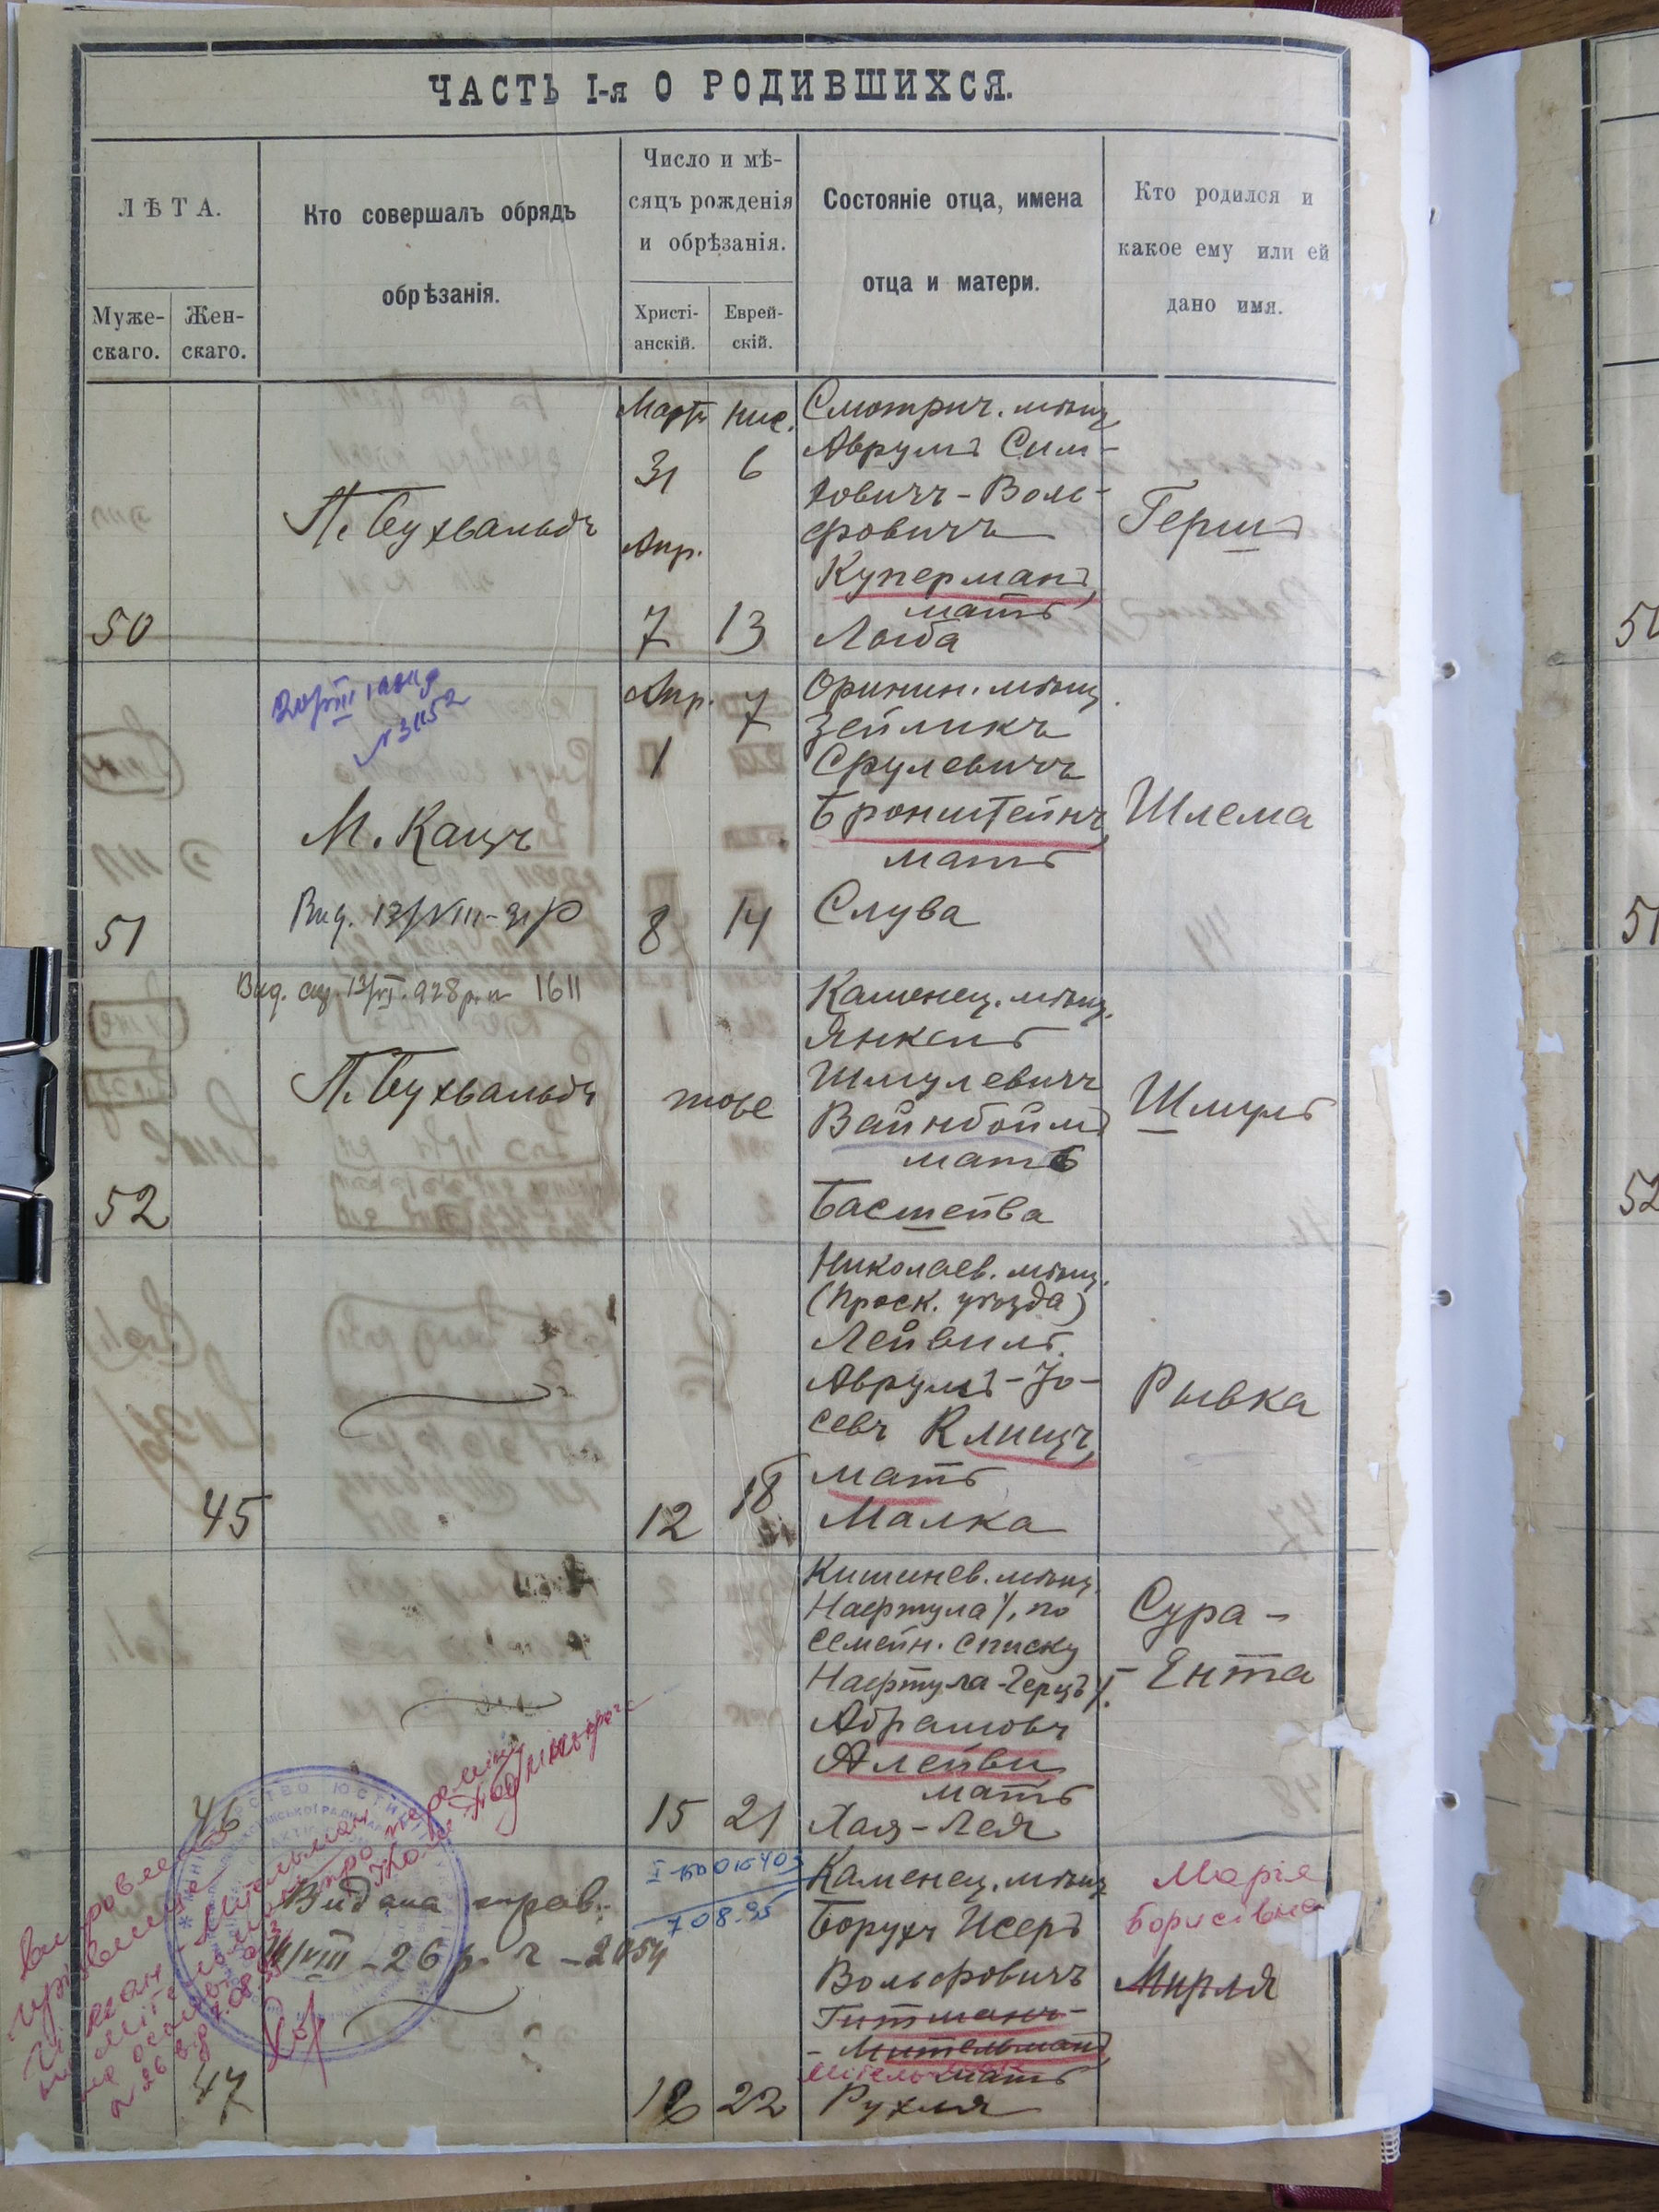 ЧАСТЬ I-я О РОДИВШИХСЯ.
ЛѢТА.
Муже-
скаго.
Жен-
скаго.
Кто совершалъ обрядъ
обрѣзанія.
Число и мѣ-
сяцъ рожденія
и обрѣзанія.
Христі-
анскій.
Еврей-
скій.
Состояніе отца, имена
отца и матери.
Кто родился и
какое ему или ей
дано имя.
50
П. Бухвальдъ
Мартъ Нис.
31 6
Апр.
7 13
Смотрич. мѣщ.
Аврумъ Сим-
ховичъ-Воль-
фовичъ
Куперманъ,
мать
Люба
Гершъ
51
№ 3152
М. Кацъ
Вид. 13/VIII-31 р
Апр. 7
1
8 14
Оринин. мѣщ.
Зейликъ
Срулевичъ
Бронштейнъ,
мать
Слува
Шлема
52
Вид. 13/VI. 928 р. № 1611
П. Бухвальдъ
тоже
Каменец. мѣщ.
Янкель
Шмулевичъ
Вайнбоймъ
мать
Басшейва
Шмуль
45
12 18
Николаев. мѣщ.
(Проск. уѣзда)
Лейвиль
Аврумъ-Іо-
севъ Клицъ,
мать
Малка
Рывка
46
15 21
Кишинев. мѣщ.
Нафтула /, по
семейн. списку
Нафтула-Герцъ /.
Абрамовъ
Алейви
мать
Хая-Лея
Сура-
-Ента
47
Видана справ.
VIII-26 р.
7.08.95
16 22
Каменец. мѣщ.
Борухъ Исеръ
Вольфовичъ
Гитманъ-
-Мительманъ,
мать
Рухля
Марія
Борисівна
Мирля